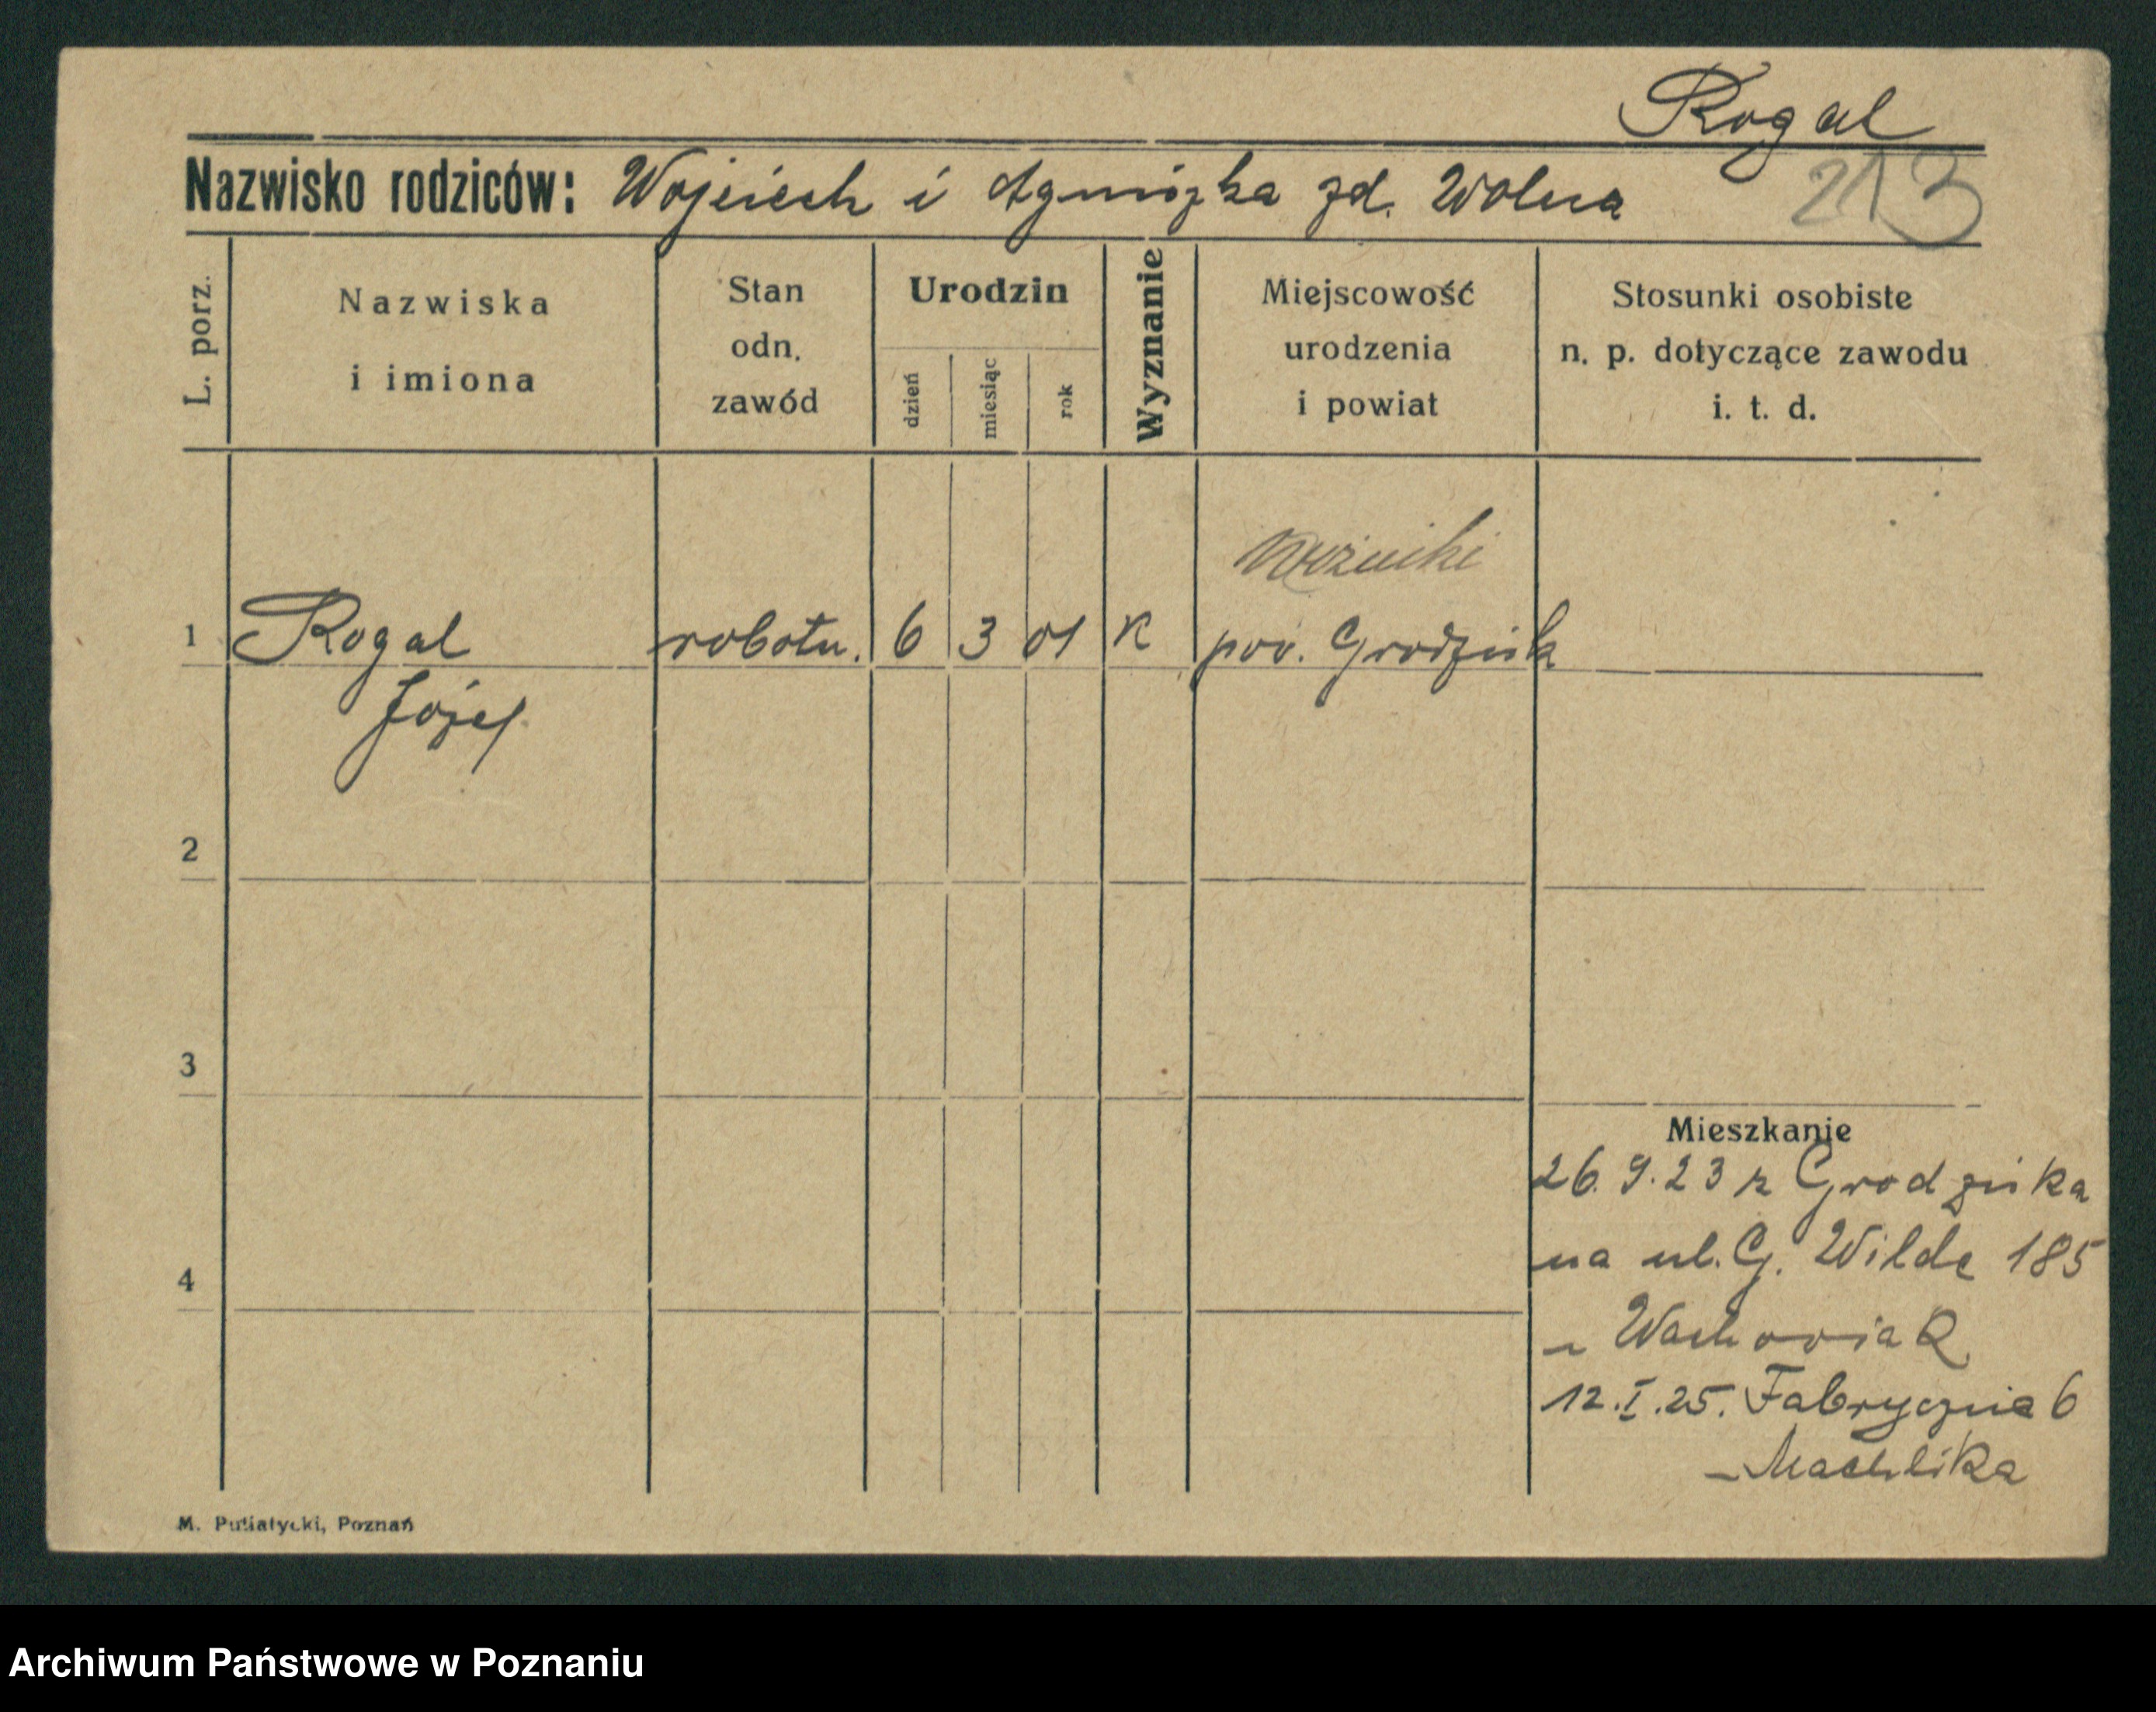 Rogal
Nazwisko rodziców: Wojciech i Agniszka zd. Wolna
213
L. porz.
Nazwiska i imiona
Stan odn. zawód
Urodzin
dzień
miesiąc
rok
Wyznanie
Miejscowość urodzenia i powiat
Stosunki osobiste n. p. dotyczące zawodu i. t. d.
Woźniki
1 Rogal robotn. 6 3 01 K pow. Grodzisk
Józef
2
3
4
Mieszkanie
26. 9. 23 z Grodziska
na ul. G. Wilde 185
u Wachowiak
12. I. 25. Fabryczna 6
- Machlika
M. Putiatycki, Poznań
Archiwum Państwowe w Poznaniu